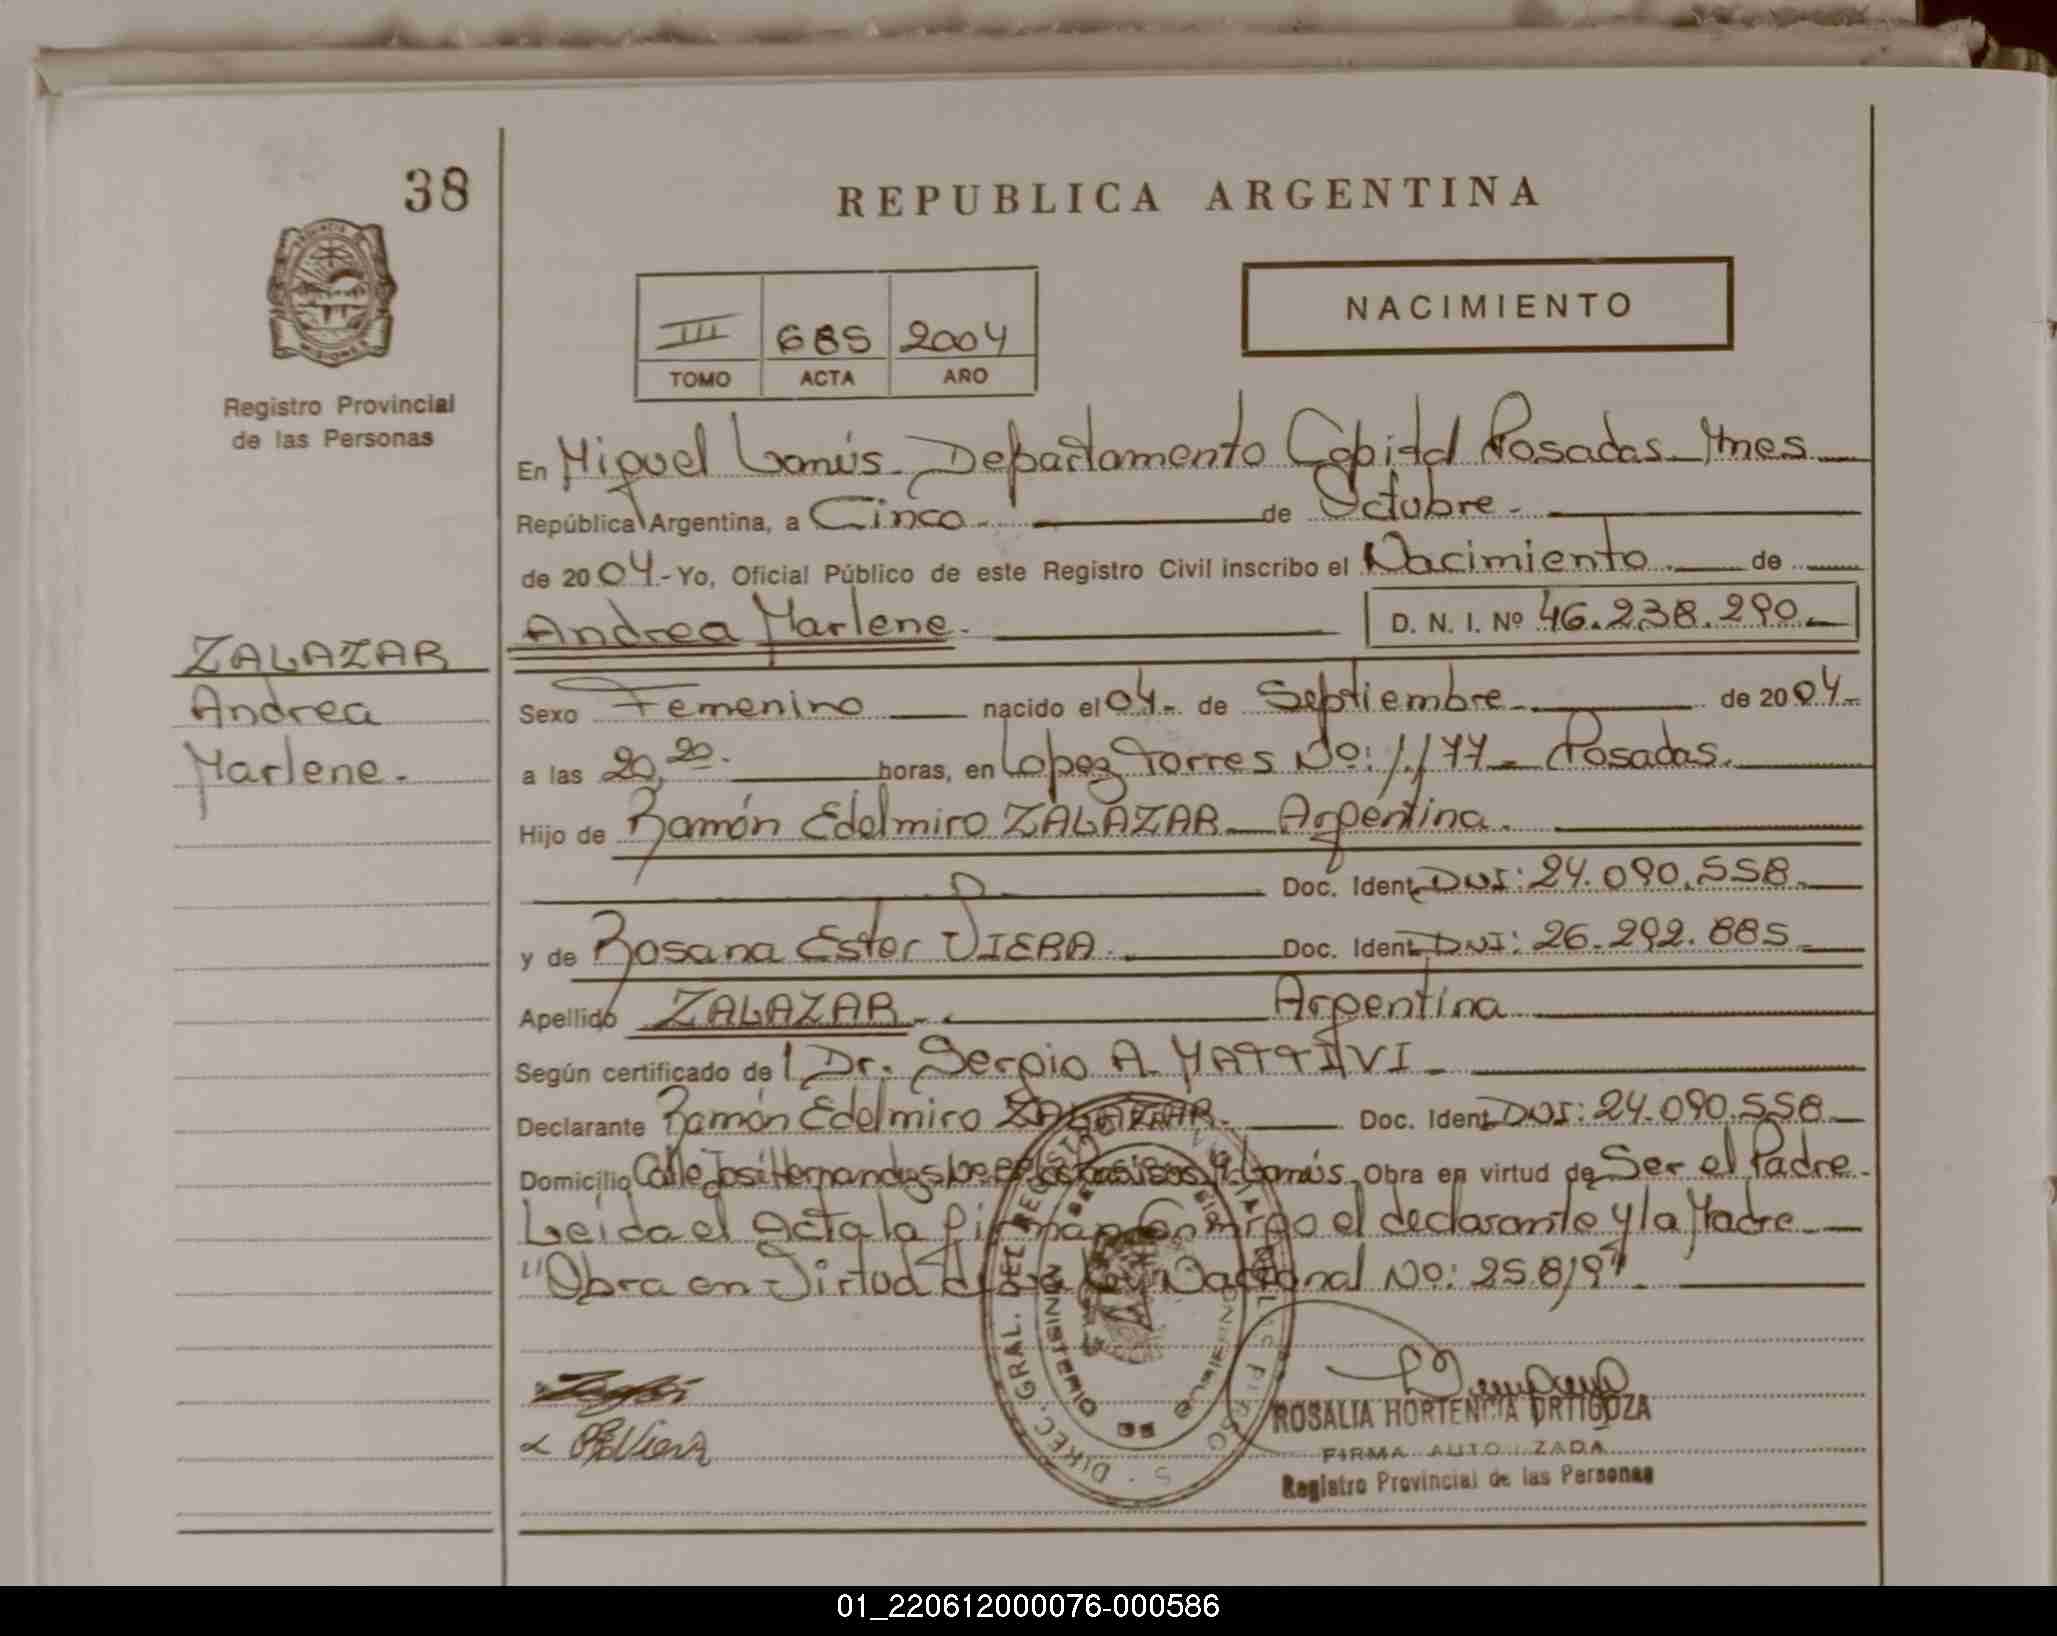 38
REPUBLICA ARGENTINA
PROVINCIA DE
MISIONES
Registro Provincial
de las Personas
III 685 2004
TOMO ACTA AÑO
NACIMIENTO
En Miguel Lanús. Departamento Capital Posadas Mnes
República Argentina, a Cinco de Octubre.
de 2004.- Yo, Oficial Público de este Registro Civil inscribo el Nacimiento de
Andrea Marlene. D. N. I. Nº 46.238.290.
ZALAZAR
Andrea
Marlene.
Sexo Femenino nacido el 04. de Septiembre de 2004.
a las 20,20. horas, en Lopez Torres No: 1.177 Posadas.
Hijo de Ramón Edelmiro ZALAZAR Argentina.
Doc. Ident. DNI: 24.090.558.
y de Rosana Ester VIERA. Doc. Ident. DNI: 26.292.885
Apellido ZALAZAR. Argentina
Según certificado de l Dr. Sergio A. MATTIVI
Declarante Ramón Edelmiro ZALAZAR. Doc. Ident. DNI: 24.090.558
Domicilio Calle José Hernandez M. Lanús. Obra en virtud de Ser el Padre.
Leída el Acta la firman conmigo el declarante y la Madre
"Obra en Virtud de la Ley Nacional No: 25.819".
DIREC. GRAL. DEL REGISTRO
ROSALIA HORTENCIA ORTIGOZA
FIRMA AUTORIZADA
Registro Provincial de las Personas
01_220612000076-000586